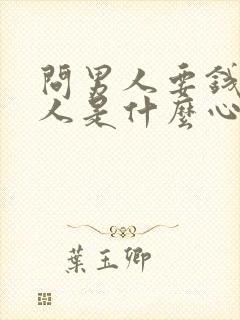 問男人要錢
人是什麼心
葉玉卿